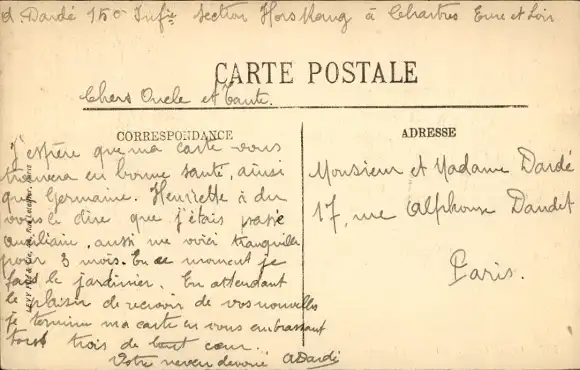 A. Dardé 150 Infie Section Hors Rang à Chartres Eure et Loir
CARTE POSTALE
Chers Oncle et Tante.
CORRESPONDANCE
ADRESSE
J'espère que ma carte vous
trouvera en bonne santé, ainsi
que Germaine. Henriette à du
vous le dire que j'étais passé
auxiliaire, aussi me voici tranquille
pour 3 mois. En ce moment je
fais le jardinier. En attendant
le plaisir de recevoir de vos nouvelles
je termine ma carte en vous embrassant
tous trois de tout cœur.
Votre neveu dévoué ADardé
Monsieur et Madame Dardé
17, rue Alphonse Daudet
Paris.